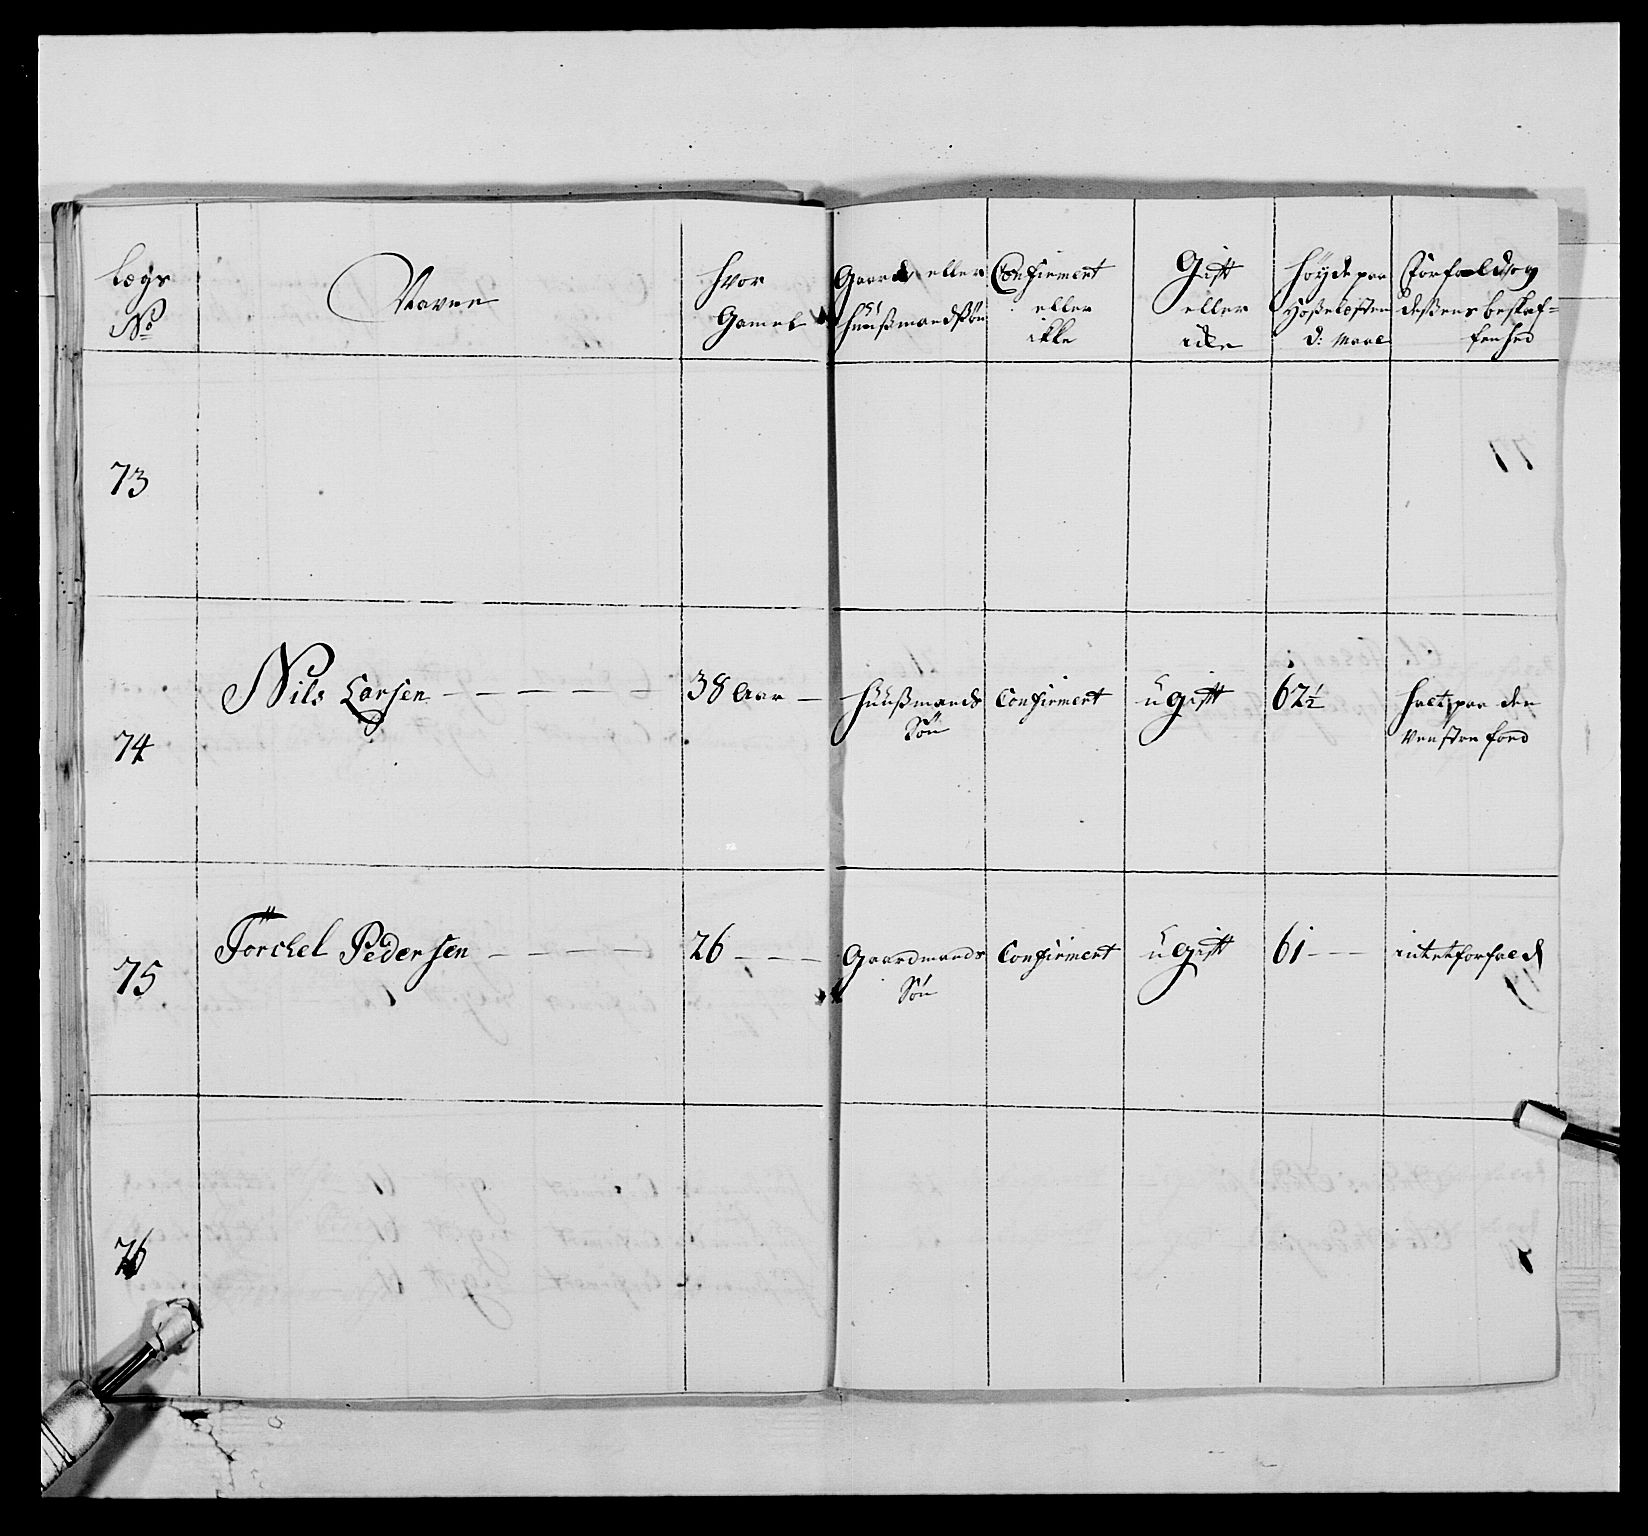 Lægs
No
Navne
hvor
Gamel
Gaard eller
Huußmandssøn
Confirment
eller
ikke
Gift
eller
icke
Høyde paa
Hoßelesten
d: Maal
Forfald og
deßens beskaf=
fenhed
73
74
Nils Larsen
38 Aar
Huußmands
Søn
Confirment
ugift
62½
halt paa den
venstre foed
75
Torchel Pedersen
26
Gaardmands
Søn
Confirment
ugift
61
intet forfald
76